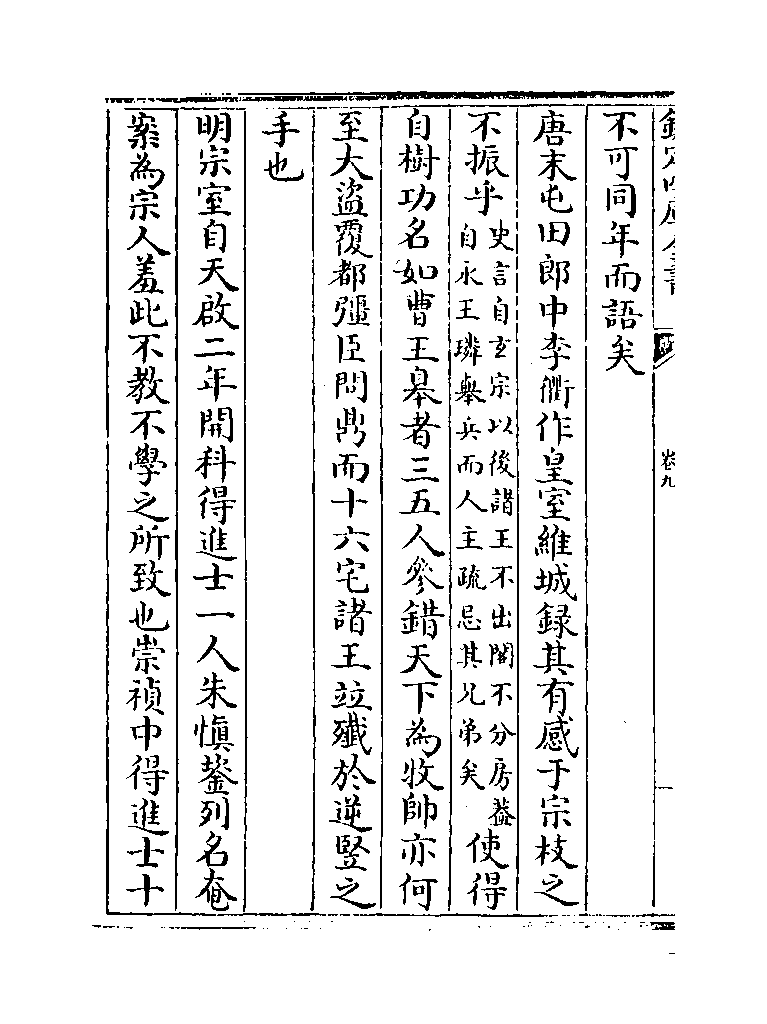 欽定四庫全書
卷九
不可同年而語矣
唐末屯田郎中李衢作皇室維城録其有感于宗枝之
不振乎史言自玄宗以後諸王不出閣不分房葢自永王璘舉兵而人主疏忌其兄弟矣使得
自樹功名如曹王臯者三五人參錯天下為牧帥亦何
至大盜覆都彊臣問鼎而十六宅諸王竝殲於逆竪之
手也
明宗室自天啟二年開科得進士一人朱慎䥗列名奄
案為宗人羞此不教不學之所致也崇禎中得進士十